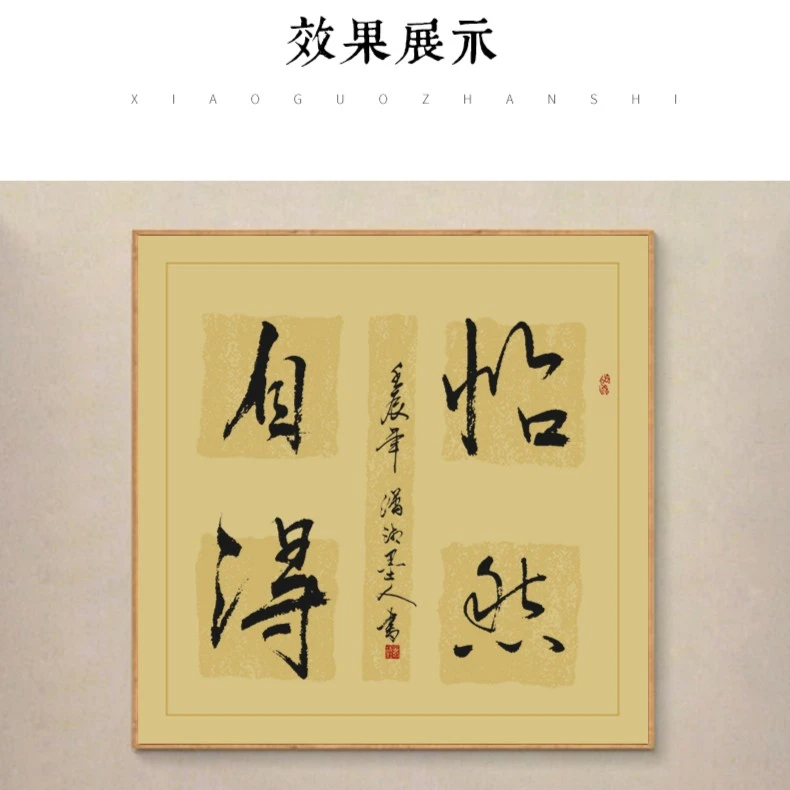 效果展示
XIAOGUOZHANSHI
怡然
自得
壬辰年 瀟湘墨人書